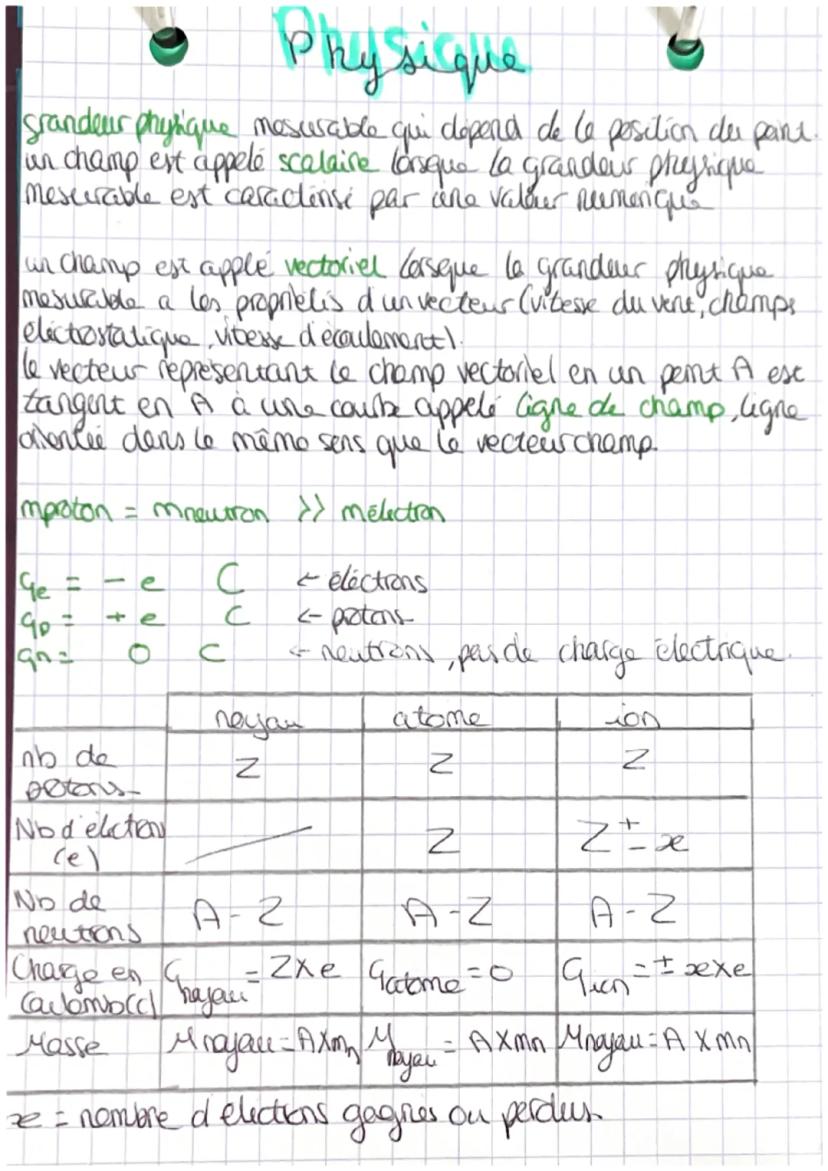 Physique
grandeur physique mesurable qui dépend de la position du point.
un champ est appelé scalaire lorsque la grandeur physique
mesurable est caractérisé par une valeur numérique
un champ est applé vectoriel lorsque la grandeur physique
mesurable a les propriétés d'un vecteur (vitesse du vent, champs
électrostatique, vitesse d'écoulement).
le vecteur représentant le champ vectoriel en un point A est
tangent en A à une courbe appelé ligne de champ, ligne
orientée dans le même sens que le vecteur champ.
mproton = mneutron >> mélectron
qe = - e C ← électrons
qp = + e C ← protons
qn = 0 C ← neutrons, pas de charge électrique.
noyau atome ion
nb de protons Z Z Z
Nb d'électron (e) Z Z ± x
Nb de neutrons A - Z A - Z A - Z
Charge en Coulomb (C) qnoyau = Z x e qatome = 0 qion = ± x x e
Masse Mnoyau = A x mn Mnoyau = A x mn Mnoyau = A x mn
x = nombre d'électrons gagnés ou perdus.